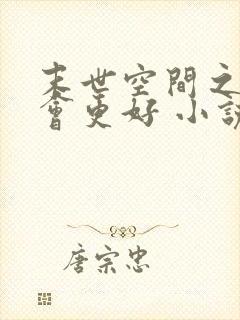 末世空間之
會更好 小說
唐宗忠